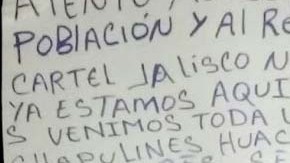 ATENTO
POBlACIÓN Y Al RE
CARTEL JAliSCO N
YA ESTAMOS AQUI
S VENIMOS TODA
CHAPULINES HUAC